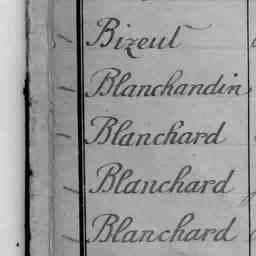 Bizeul
Blanchandin
Blanchard
Blanchard
Blanchard